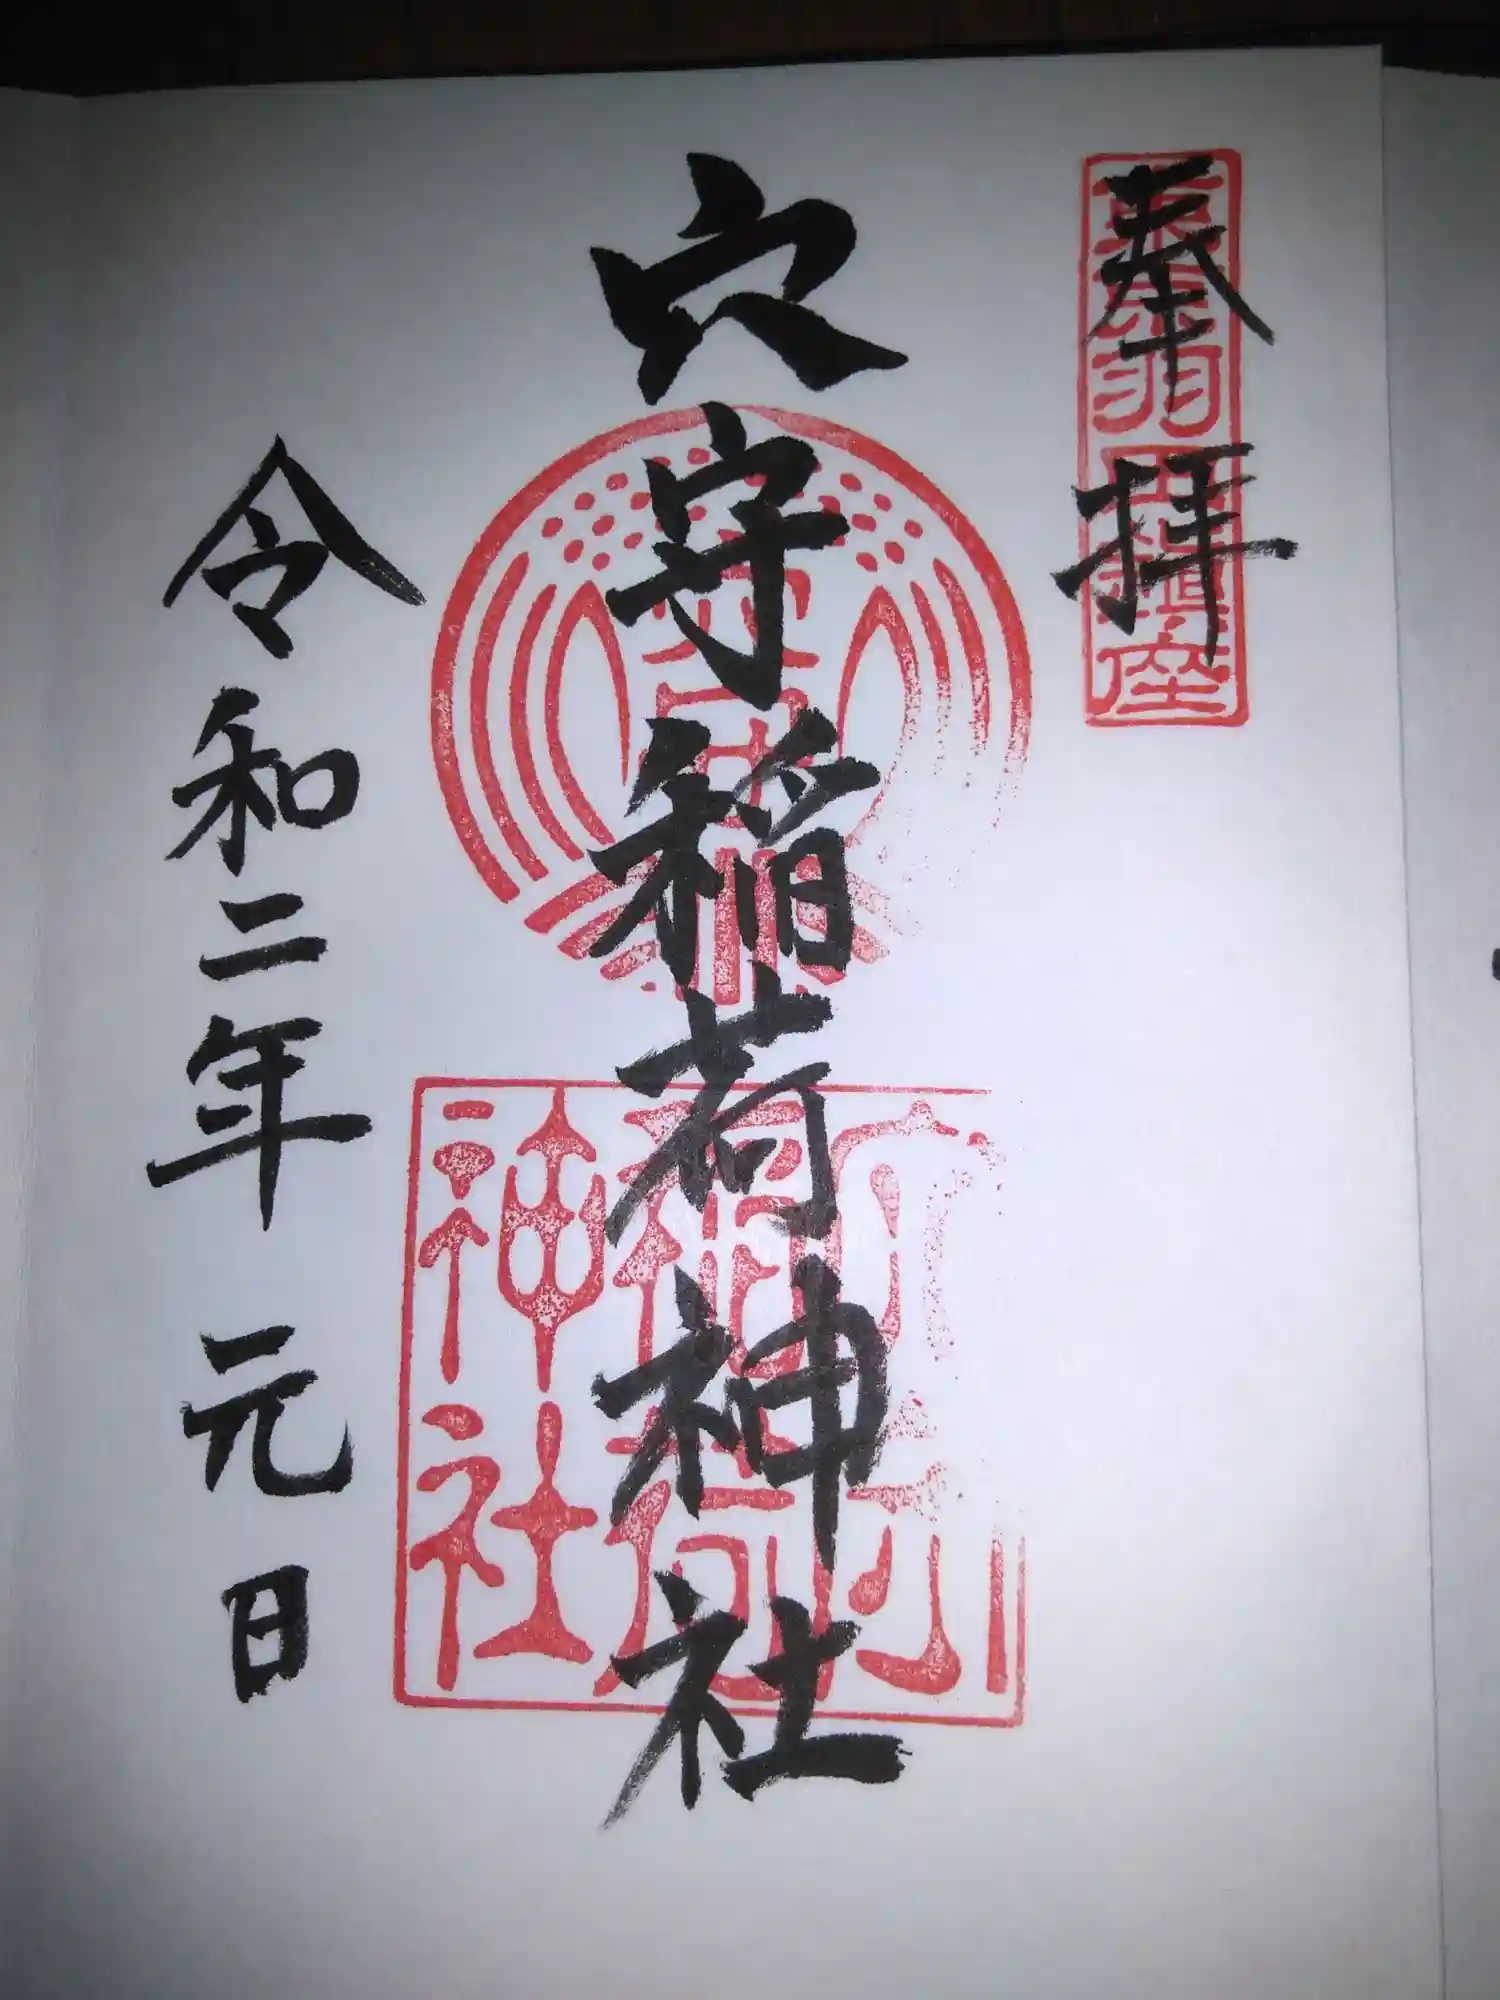 奉拝
東京羽田鎮座
穴守稲荷神社
穴守
穴守稲荷神社
令和二年 元日